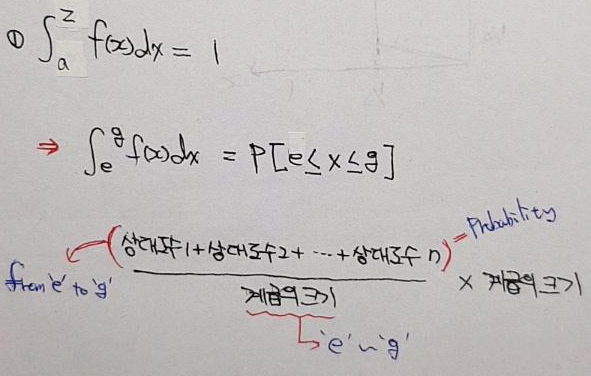 ① ∫ₐᶻ f(x)dx = 1
⇒ ∫ₑᵍ f(x)dx = P[e≤x≤g]
(상대도수1+상대도수2+ ⋯ +상대도수 n) = Probability
from 'e' to 'g'
계급의 크기 × 계급의 크기
'e' ~ 'g'